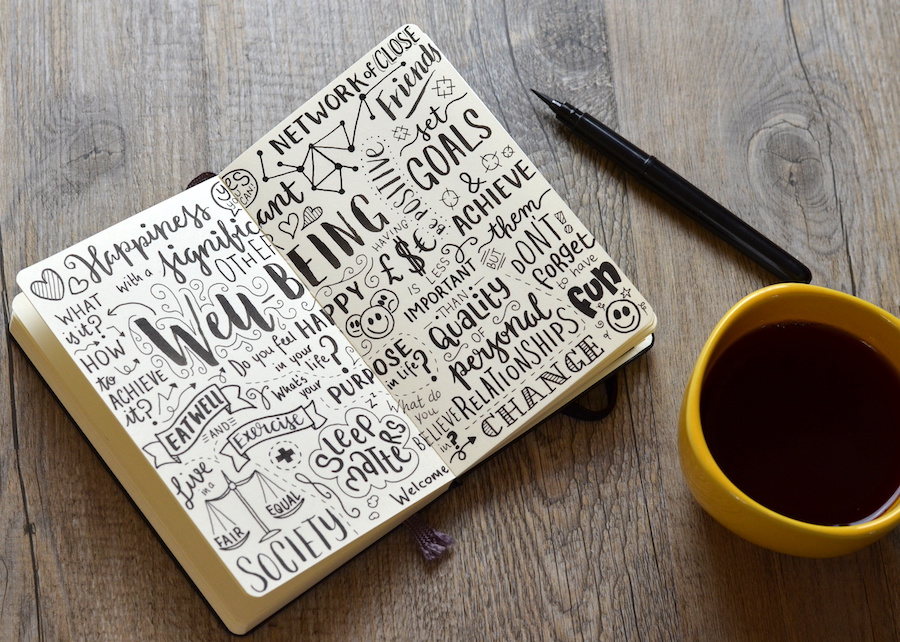 Happiness
with a
significant
OTHER
yes
YOU
CAN!
WHAT
is it?
HOW
to
ACHIEVE
it?
Well BEING
Do you feel HAPPY
in your
life?
What's
your
PURPOSE
in life?
EAT WELL
AND
Exercise
Sleep
matters
Live
in a
FAIR
EQUAL
SOCIETY
Welcome
CHANGE
What do
you
BELIEVE
in?
NETWORK of CLOSE
Friends
set
GOALS
&
ACHIEVE
them
BE POSITIVE
HAVING
£$€
IS LESS
IMPORTANT
THAN
Quality
OF
personal
RELATIONSHIPS
DON'T
forget
to have
fun